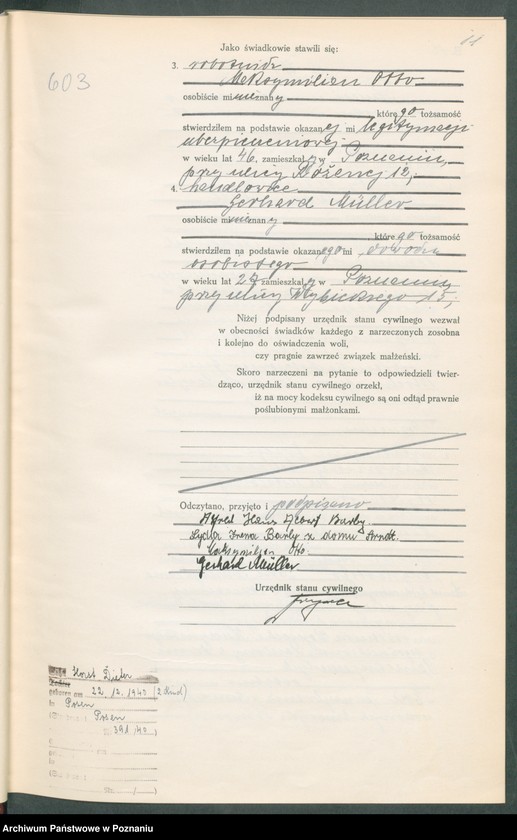 11
603
Jako świadkowie stawili się:
3. robotnik
Maksymilian Otto
osobiście mi nieznany
którego tożsamość
stwierdziłem na podstawie okazanej mi legitymacji
ubezpieczeniowej
w wieku lat 46, zamieszkały w Poznaniu,
przy ulicy 12,
4. handlowiec
Gerhard Müller
osobiście mi nieznany
którego tożsamość
stwierdziłem na podstawie okazanego mi dowodu
osobistego
w wieku lat zamieszkały w Poznaniu
przy ulicy Wybickiego 15,
Niżej podpisany urzędnik stanu cywilnego wezwał
w obecności świadków każdego z narzeczonych zosobna
i kolejno do oświadczenia woli,
czy pragnie zawrzeć związek małżeński.
Skoro narzeczeni na pytanie to odpowiedzieli twier-
dząco, urzędnik stanu cywilnego orzekł,
iż na mocy kodeksu cywilnego są oni odtąd prawnie
poślubionymi małżonkami.
Odczytano, przyjęto i podpisano
Alfred Hans Adolf Barby
Lydia Irena Barby z domu Arndt.
Maksymilian Otto
Gerhard Müller
Urzędnik stanu cywilnego
Horst Dieter
geboren am 22.12.1940 (2 Kind)
in Posen
Posen
391/40
Archiwum Państwowe w Poznaniu